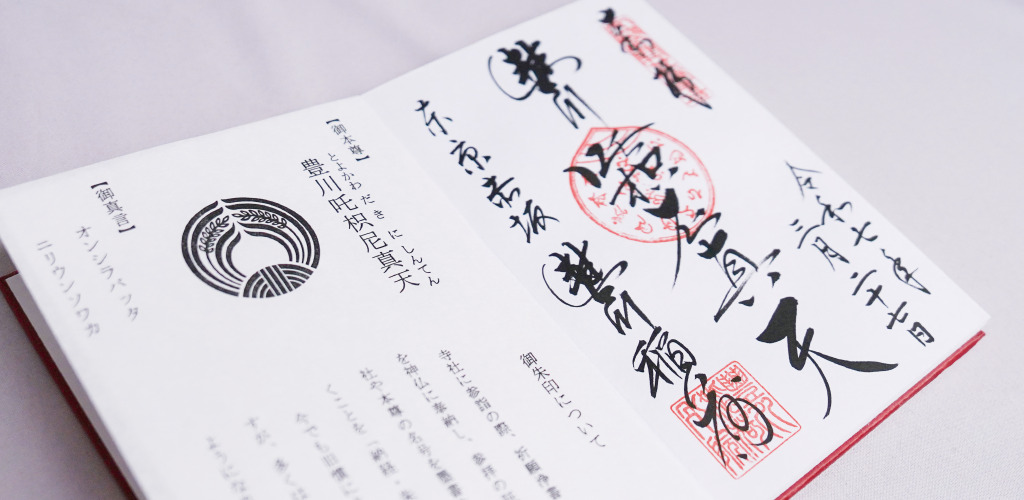 奉拝
令和七年
三月二十七日
豊川吒枳尼真天
東京赤坂 豊川稲荷
【御本尊】
とよかわ だ き に しんてん
豊川吒枳尼真天
【御真言】
オンシラバッタ
ニリウンソワカ
御朱印について
寺社に参詣の際、祈願浄書
を神仏に奉納し、参拝の
社や本尊の名号を墨書
くことを「納経・朱
今でも旧儀に
すが、多くは
ようにな